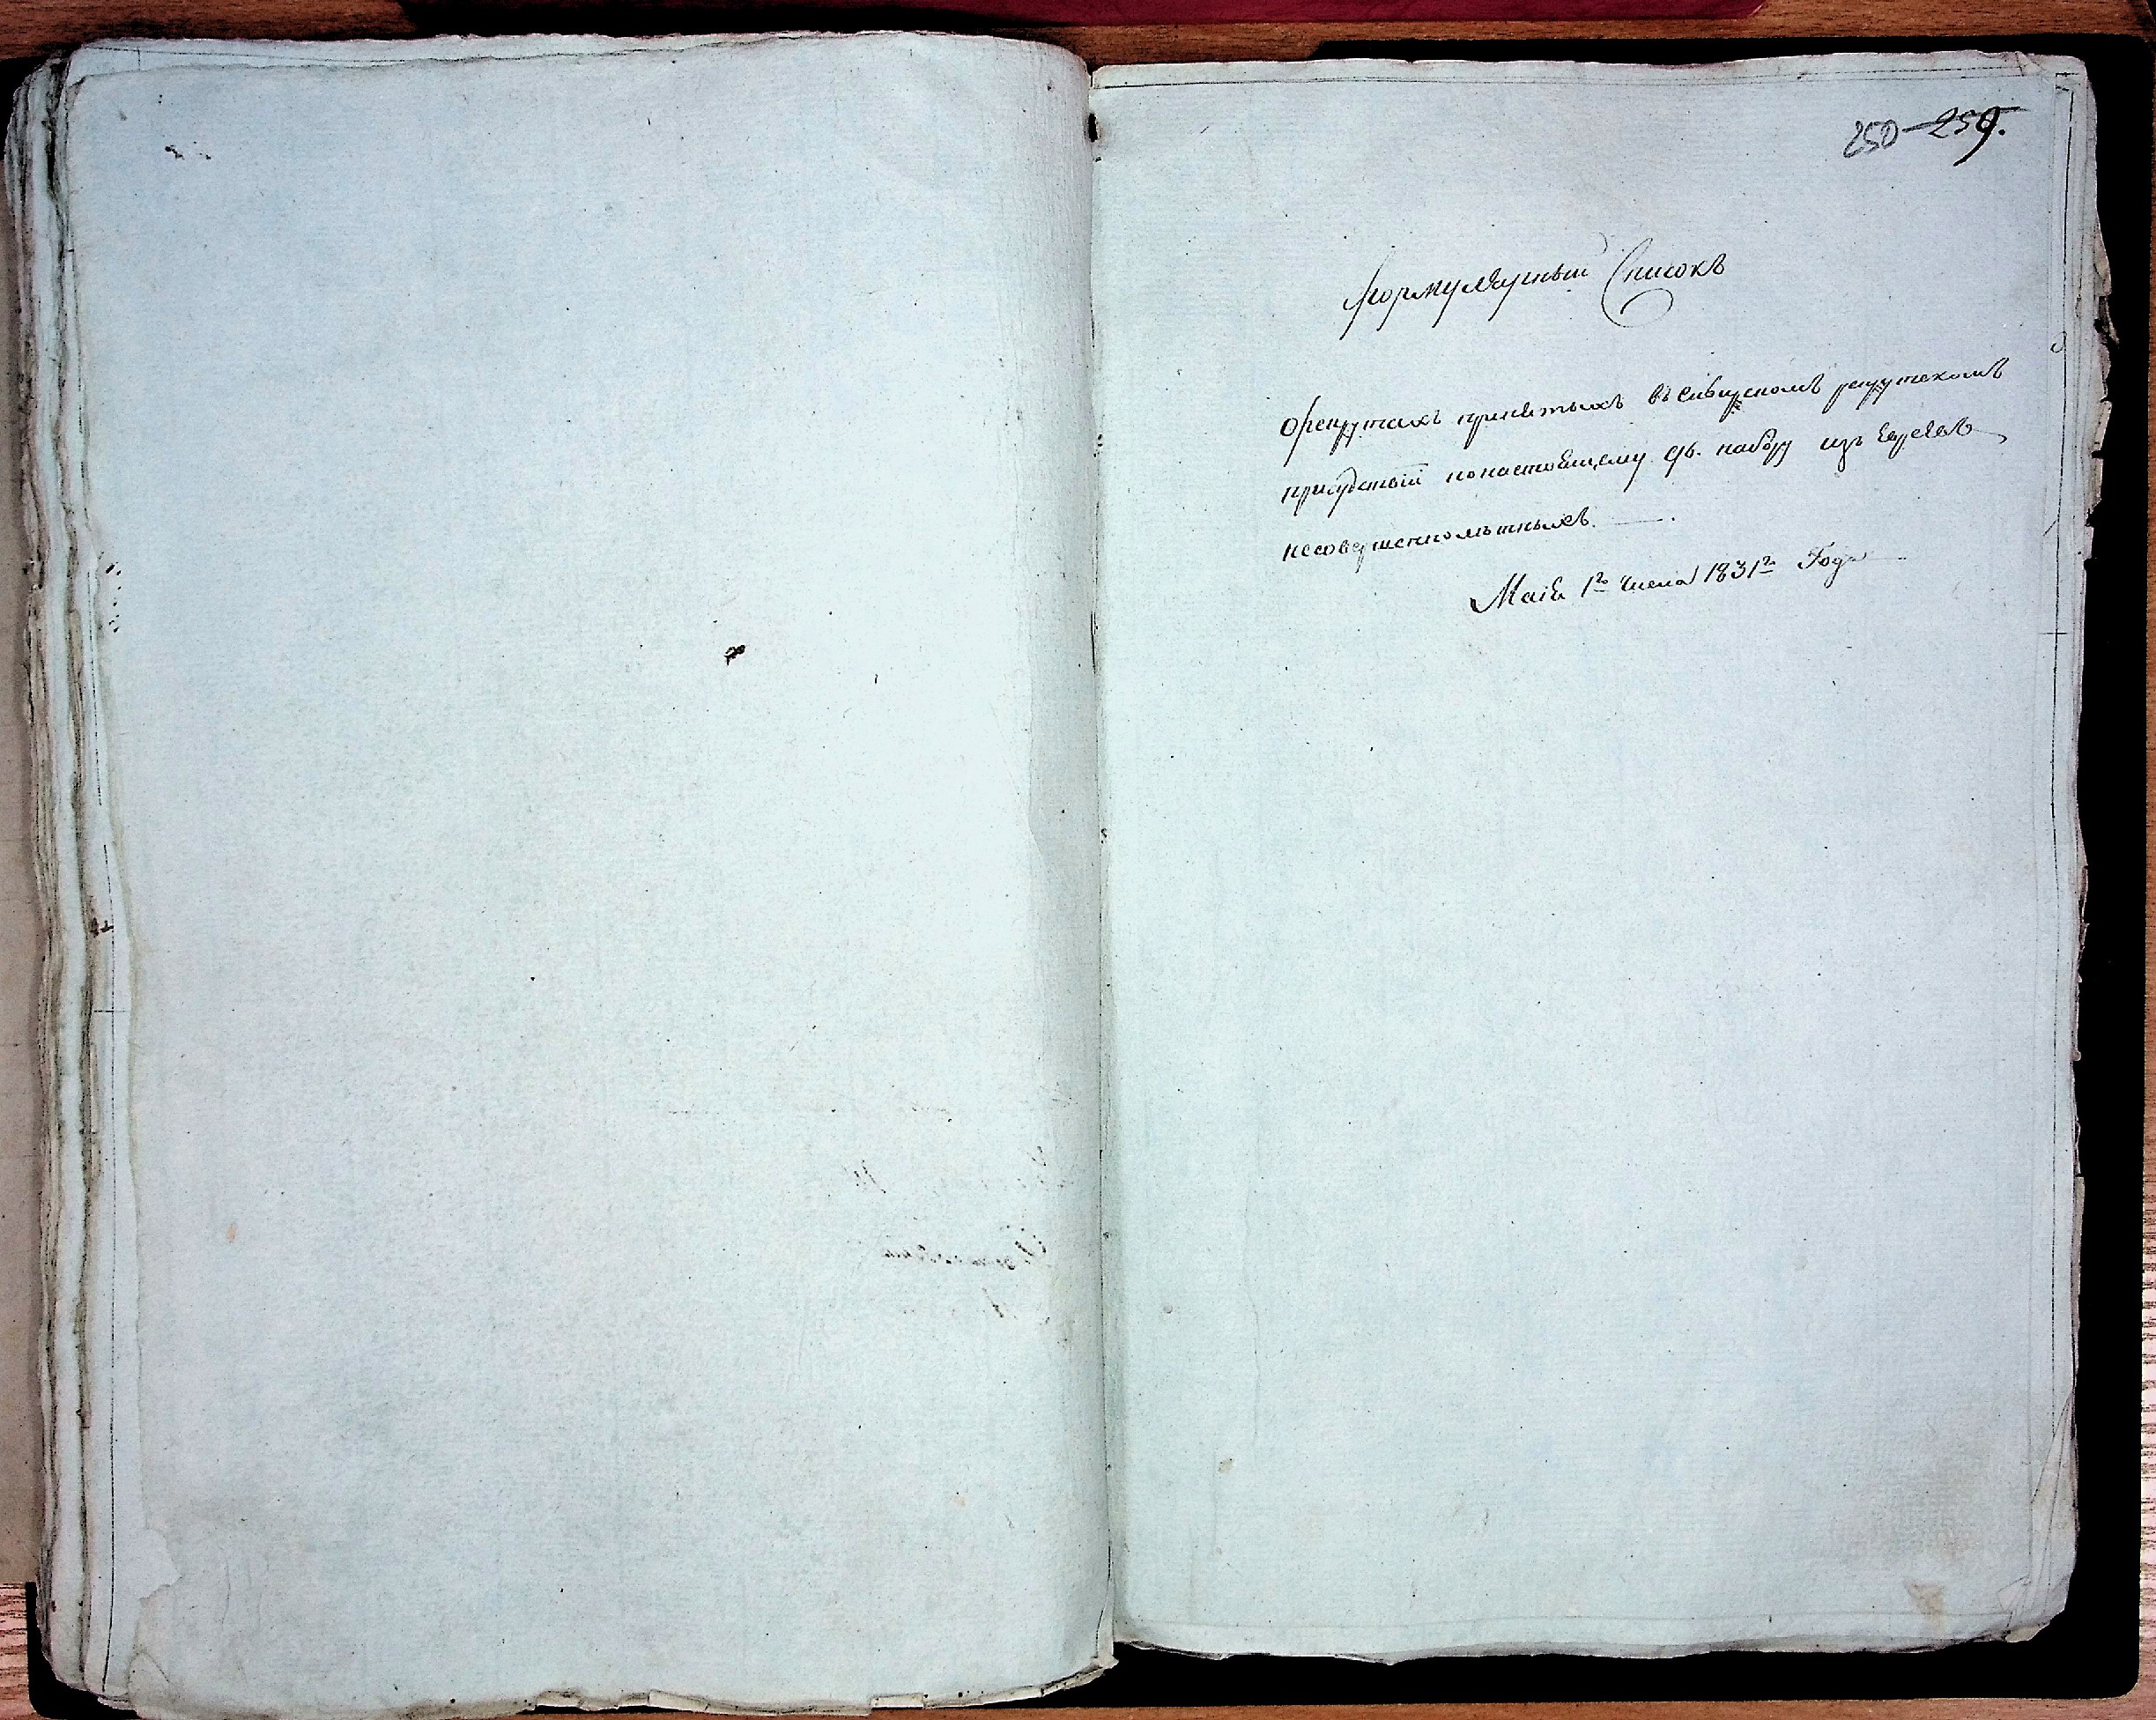 250 259.
Формулярный Списокъ
орекрутахъ принятыхъ въ рекрутскомъ
присудствіи понастоящему 96. набору изъ Евреевъ
несовершеннолѣтныхъ.
Маія 1го числа 1831го Года